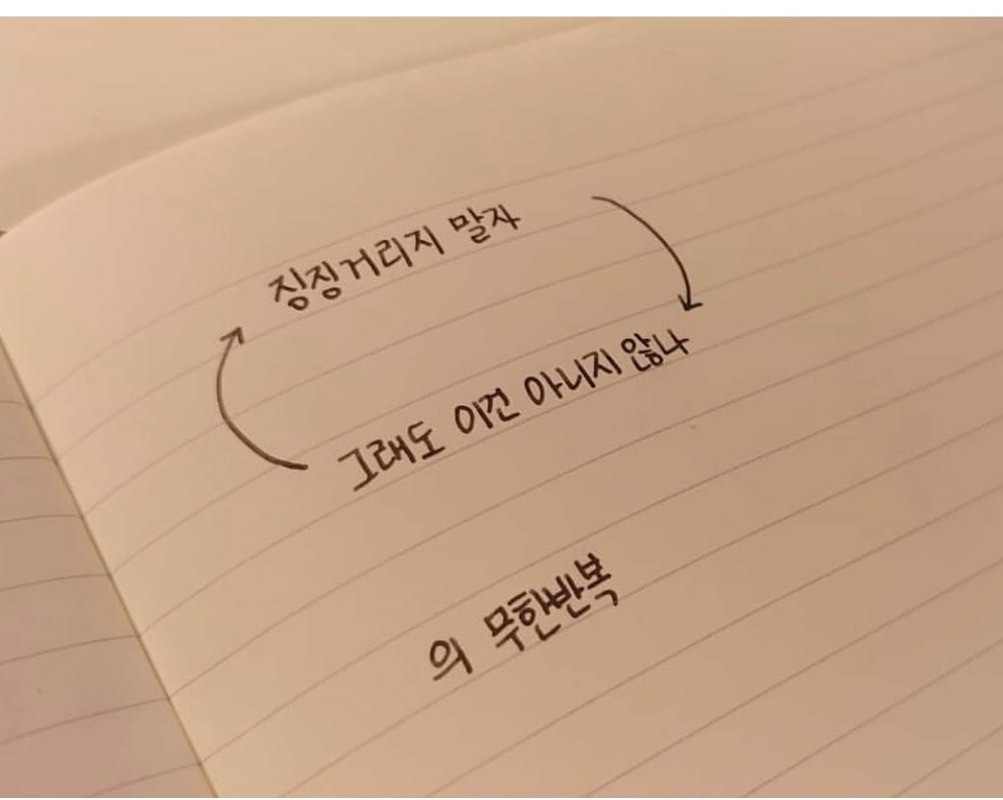 징징거리지 말자
그래도 이건 아니지 않나
의 무한반복